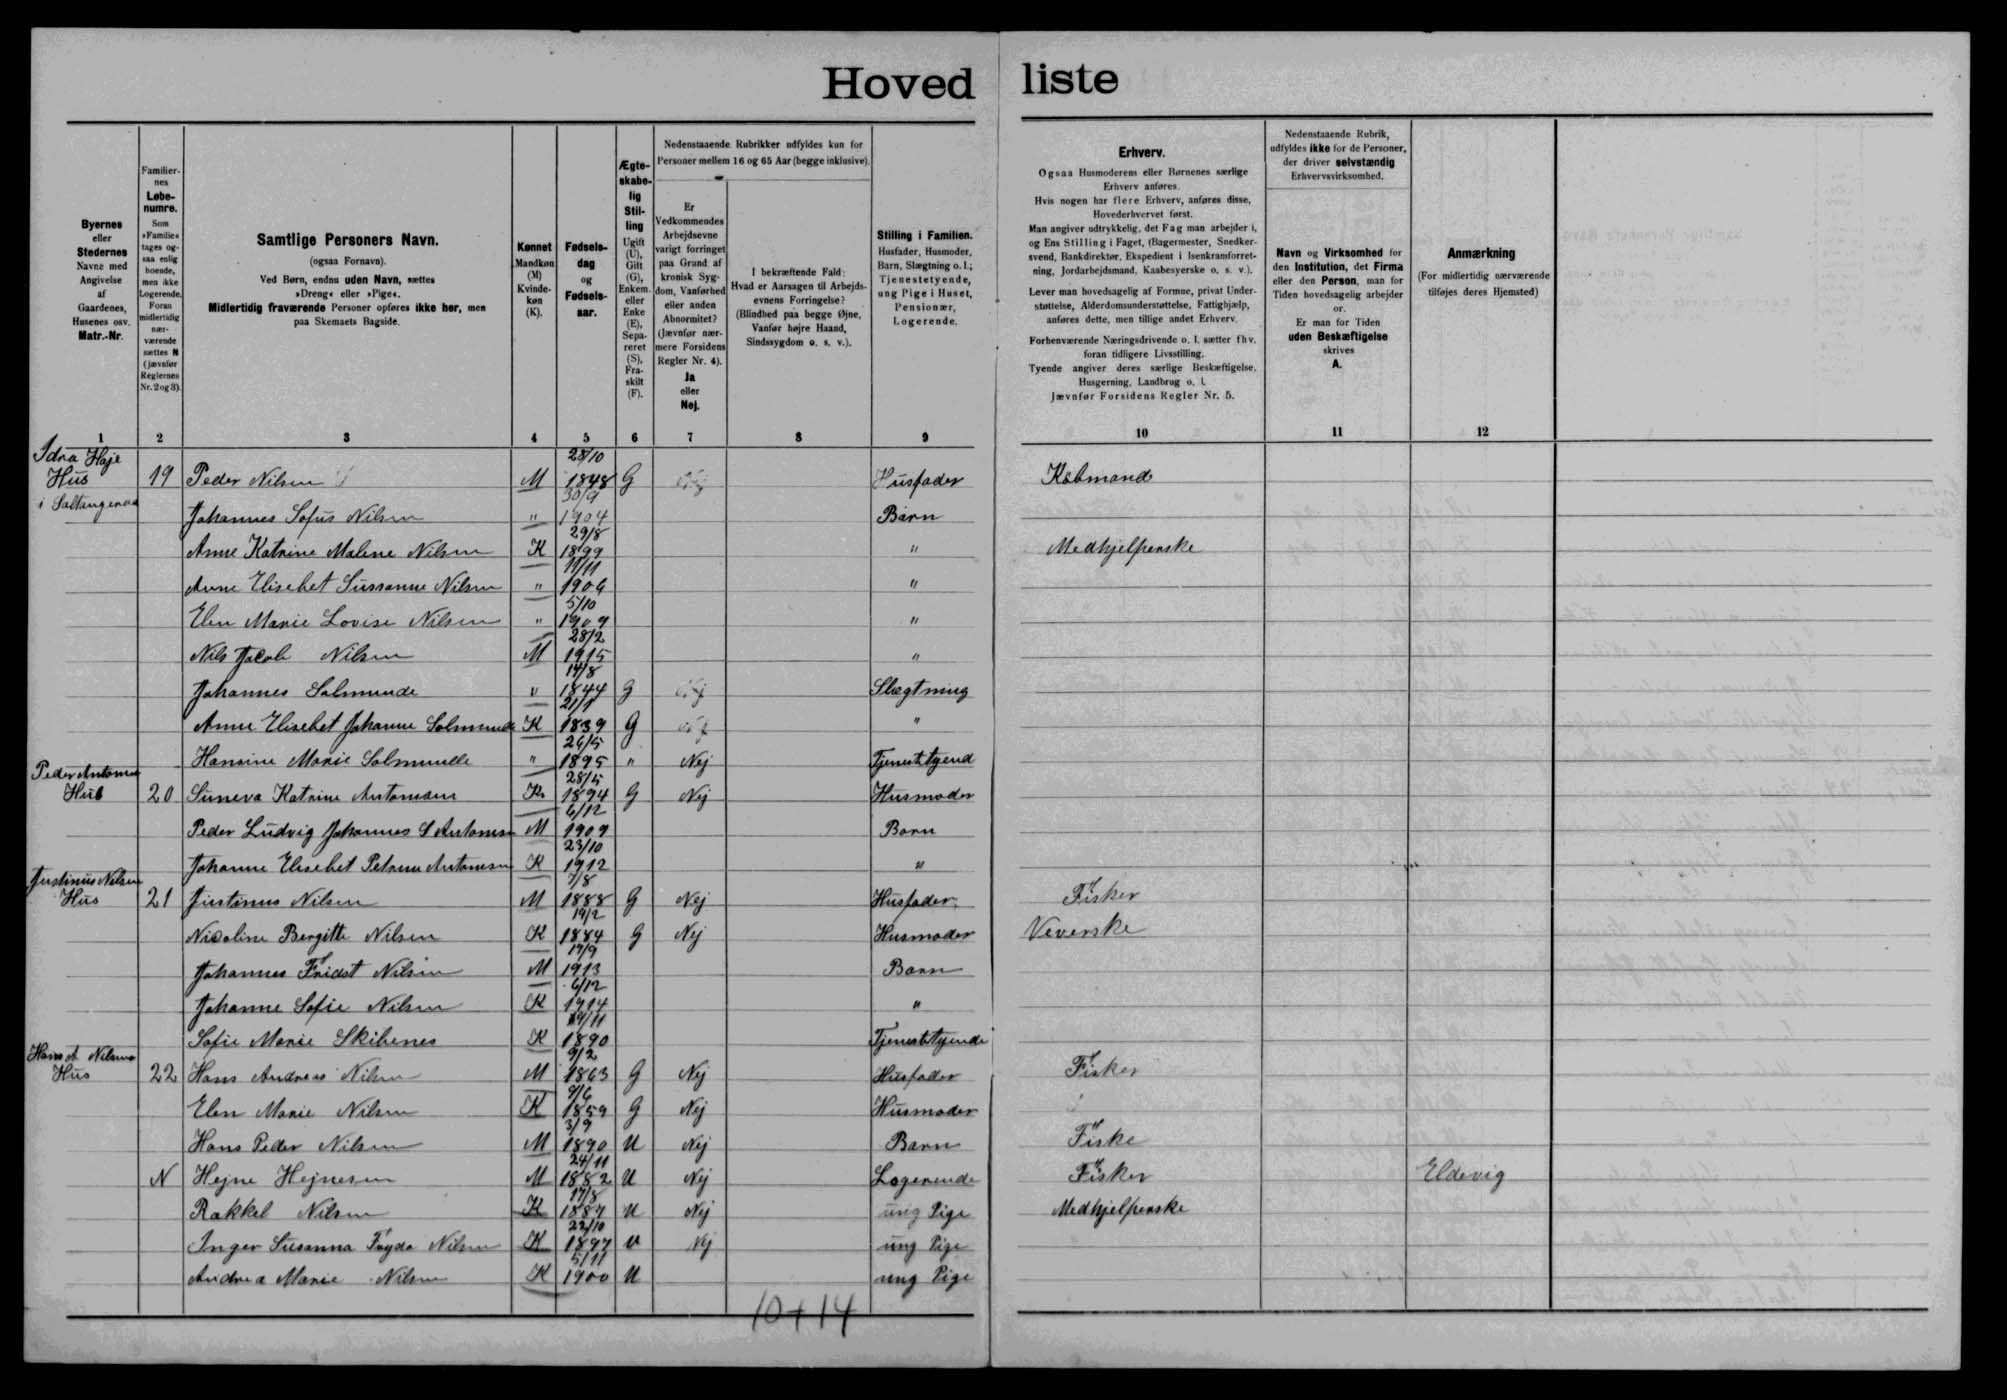 Hovedliste
Byernes
eller
Stedernes
Navne med
Angivelse
af
Gaardenes,
Husenes osv.
Matr.-Nr.
Familier-
nes
Løbe-
numre.
Som
»Familie«
tages og-
saa enlig
boende,
men ikke
Logerende.
Foran
midlertidig
nær-
værende
sættes N
(jævnfør
Reglernes
Nr. 2 og 3).
Samtlige Personers Navn.
(ogsaa Fornavn).
Ved Børn, endnu uden Navn, sættes
»Dreng« eller »Pige«.
Midlertidig fraværende Personer opføres ikke her, men
paa Skemaets Bagside.
Kønnet
Mandkøn
(M)
Kvinde-
køn
(K).
Fødsels-
dag
og
Fødsels-
aar.
Ægte-
skabe-
lig
Stil-
ling
Ugift
(U),
Gift
(G),
Enkem.
eller
Enke
(E),
Sepa-
reret
(S),
Fra-
skilt
(F).
Nedenstaaende Rubrikker udfyldes kun for
Personer mellem 16 og 65 Aar (begge inklusive).
Er
Vedkommendes
Arbejdsevne
varigt forringet
paa Grund af
kronisk Syg-
dom, Vanførhed
eller anden
Abnormitet?
(Jævnfør nær-
mere Forsidens
Regler Nr. 4).
Ja
eller
Nej.
I bekræftende Fald:
Hvad er Aarsagen til Arbejds-
evnens Forringelse?
(Blindhed paa begge Øjne,
Vanfør højre Haand,
Sindssygdom o. s. v.).
Stilling i Familien.
Husfader, Husmoder,
Barn, Slægtning o. l.;
Tjenestetyende,
ung Pige i Huset,
Pensionær,
Logerende.
Erhverv.
Ogsaa Husmoderens eller Børnenes særlige
Erhverv anføres.
Hvis nogen har flere Erhverv, anføres disse,
Hovederhvervet først.
Man angiver udtrykkelig, det Fag man arbejder i,
og Ens Stilling i Faget, (Bagermester, Snedker-
svend, Bankdirektør, Ekspedient i Isenkramforret-
ning, Jordarbejdsmand, Kaabesyerske o. s. v.).
Lever man hovedsagelig af Formue, privat Under-
støttelse, Alderdomsunderstøttelse, Fattighjælp,
anføres dette, men tillige andet Erhverv.
Forhenværende Næringsdrivende o. l. sætter fhv.
foran tidligere Livsstilling.
Tyende angiver deres særlige Beskæftigelse,
Husgerning, Landbrug o. l.
Jævnfør Forsidens Regler Nr. 5.
Nedenstaaende Rubrik,
udfyldes ikke for de Personer,
der driver selvstændig
Erhvervsvirksomhed.
Navn og Virksomhed for
den Institution, det Firma
eller den Person, man for
Tiden hovedsagelig arbejder
for.
Er man for Tiden
uden Beskæftigelse
skrives
A.
Anmærkning
(For midlertidig nærværende
tilføjes deres Hjemsted)
1 2 3 4 5 6 7 8 9 10 11 12
Idra Høje
Hus 19 Peder Nilsen M 28/10 1848 G Nej Husfader Købmand
i Saltangeraa Johannes Sofus Nilsen " 30/9 1904 Barn
Anne Katrine Malene Nilsen K 29/8 1899 " Medhjelperske
Anne Elisebet Sussanne Nilsen " 11/11 1906 "
Elen Marie Lovise Nilsen " 5/10 1909 "
Nils Jacob Nilsen M 28/2 1915 "
Johannes Solmunde " 14/8 1844 G Nej Slægtning
Anne Elisebet Johanne Solmunde K 21/1 1839 G Nej "
Hansine Marie Solmunde " 26/5 1895 " Nej Tjenestetyend
Peder Antonsen
Hus 20 Suneva Katrine Antonsen K 28/5 1894 G Nej Husmoder
Peder Ludvig Johannes S Antonsen M 6/12 1909 Barn
Johanne Elisebet Petrine Antonsen K 23/10 1912 "
Justinus Nilsen
Hus 21 Justinus Nilsen M 7/8 1888 G Nej Husfader Fisker
Nicoline Bergitte Nilsen K 19/2 1884 G Nej Husmoder Veverske
Johannes Fridst Nilsen M 17/9 1913 Barn
Johanne Sofie Nilsen K 6/12 1914 "
Sofie Marie Skibenes K 19/11 1890 Tjenestetyende
Hans A Nilsens
Hus 22 Hans Andreas Nilsen M 9/2 1863 G Nej Husfader Fisker
Elen Marie Nilsen K 9/6 1859 G Nej Husmoder
Hans Peder Nilsen M 3/9 1890 U Nej Barn Fiske
N Hejne Hejnesen M 24/11 1882 U Nej Logerende Fisker Eldevig
Rakkel Nilsen K 17/8 1887 U Nej ung Pige Medhjelperske
Inger Susanna Fryda Nilsen K 22/10 1897 U Nej ung Pige
Andrea Marie Nilsen K 5/11 1900 U ung Pige
10+14